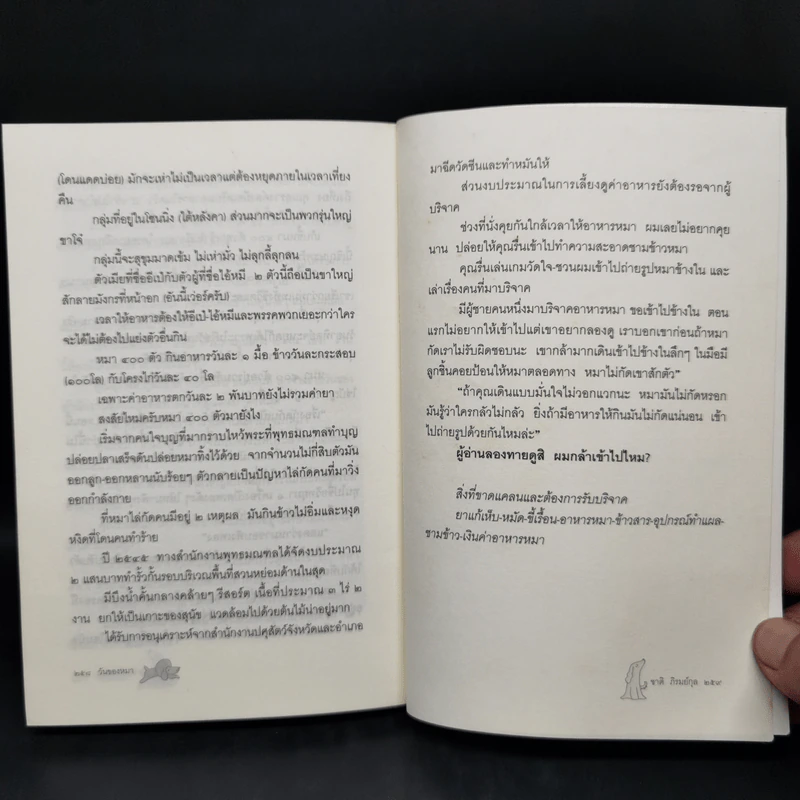 (โดนแดดบ่อย) มักจะเห่าไม่เป็นเวลาแต่ต้องหยุดภายในเวลาเที่ยง
คืน
กลุ่มที่อยู่ในโซนนิ่ง (ใต้หลังคา) ส่วนมากจะเป็นพวกรุ่นใหญ่
ขาโจ๋
กลุ่มนี้จะสุขุมมาดเข้ม ไม่เห่ามั่ว ไม่ลุกลี้ลุกลน
ตัวเมียที่ชื่ออีเป๋กับตัวผู้ที่ชื่อไอ้หมี ๒ ตัวนี้ถือเป็นขาใหญ่
สักลายมังกรที่หน้าอก (อันนี้เว่อร์ครับ)
เวลาให้อาหารต้องให้อีเป๋-ไอ้หมีและพรรคพวกเยอะกว่าใคร
จะได้ไม่ต้องไปแย่งตัวอื่นกิน
หมา ๔๐๐ ตัว กินอาหารวันละ ๑ มื้อ ข้าววันละกระสอบ
(๑๐๐โล) กับโครงไก่วันละ ๔๐ โล
เฉพาะค่าอาหารตกวันละ ๒ พันบาทยังไม่รวมค่ายา
สงสัยไหมครับหมา ๔๐๐ ตัวมายังไง
เริ่มจากคนใจบุญที่มากราบไหว้พระที่พุทธมณฑลทำบุญ
ปล่อยปลาเสร็จดันปล่อยหมาทิ้งไว้ด้วย จากจำนวนไม่กี่สิบตัวมัน
ออกลูก-ออกหลานนับร้อยๆ ตัวกลายเป็นปัญหาไล่กัดคนที่มาวิ่ง
ออกกำลังกาย
ที่หมาไล่กัดคนมีอยู่ ๒ เหตุผล มันกินข้าวไม่อิ่มและหงุด
หงิดที่โดนคนทำร้าย
ปี ๒๕๔๕ ทางสำนักงานพุทธมณฑลได้จัดงบประมาณ
๒ แสนบาททำรั้วกั้นรอบบริเวณพื้นที่สวนหย่อมด้านในสุด
มีบึงน้ำคั้นกลางคล้ายๆ รีสอร์ต เนื้อที่ประมาณ ๓ ไร่ ๒
งาน ยกให้เป็นเกาะของสุนัข แวดล้อมไปด้วยต้นไม้น่าอยู่มาก
ได้รับการอนุเคราะห์จากสำนักงานปศุสัตว์จังหวัดและอำเภอ
๒๕๘ วันของหมา
มาฉีดวัคซีนและทำหมันให้
ส่วนงบประมาณในการเลี้ยงดูค่าอาหารยังต้องรอจากผู้
บริจาค
ช่วงที่นั่งคุยกันใกล้เวลาให้อาหารหมา ผมเลยไม่อยากคุย
นาน ปล่อยให้คุณรื่นเข้าไปทำความสะอาดชามข้าวหมา
คุณรื่นเล่นเกมวัดใจ-ชวนผมเข้าไปถ่ายรูปหมาข้างใน และ
เล่าเรื่องคนที่มาบริจาค
มีผู้ชายคนหนึ่งมาบริจาคอาหารหมา ขอเข้าไปข้างใน ตอน
แรกไม่อยากให้เข้าไปแต่เขาอยากลองดู เราบอกเขาก่อนถ้าหมา
กัดเราไม่รับผิดชอบนะ เขากล้ามากเดินเข้าไปข้างในลึกๆ ในมือมี
ลูกชิ้นคอยป้อนให้หมาตลอดทาง หมาไม่กัดเขาสักตัว"
"ถ้าคุณเดินแบบมั่นใจไม่วอกแวกนะ หมามันไม่กัดหรอก
มันรู้ว่าใครกลัวไม่กลัว ยิ่งถ้ามีอาหารให้กินมันไม่กัดแน่นอน เข้า
ไปถ่ายรูปด้วยกันไหมล่ะ"
ผู้อ่านลองทายดูสิ ผมกล้าเข้าไปไหม?
สิ่งที่ขาดแคลนและต้องการรับบริจาค
ยาแก้เห็บ-หมัด-ขี้เรื้อน-อาหารหมา-ข้าวสาร-อุปกรณ์ทำแผล-
ชามข้าว-เงินค่าอาหารหมา
ชาติ ภิรมย์กุล ๒๕๙